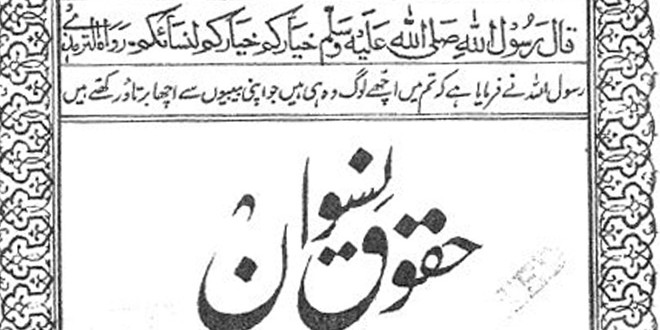 قال رسول الله صلى الله عليه وسلم خياركم خياركم لنسائكم۔ رواه الترمذی
رسول اللہ نے فرمایا ہے کہ تم میں اچھے لوگ وہ ہی ہیں جو اپنی بیبیوں سے اچھا برتاؤ رکھتے ہیں
حقوق نسواں